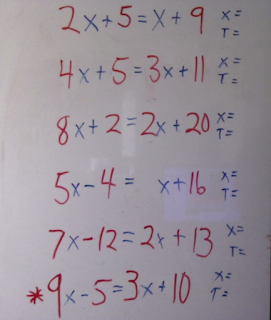 2x+5=x+9 x=
T=
4x+5=3x+11 x=
T=
8x+2=2x+20 x=
T=
5x-4= x+16 x=
T=
7x-12=2x+13 x=
T=
*9x-5=3x+10 x=
T=